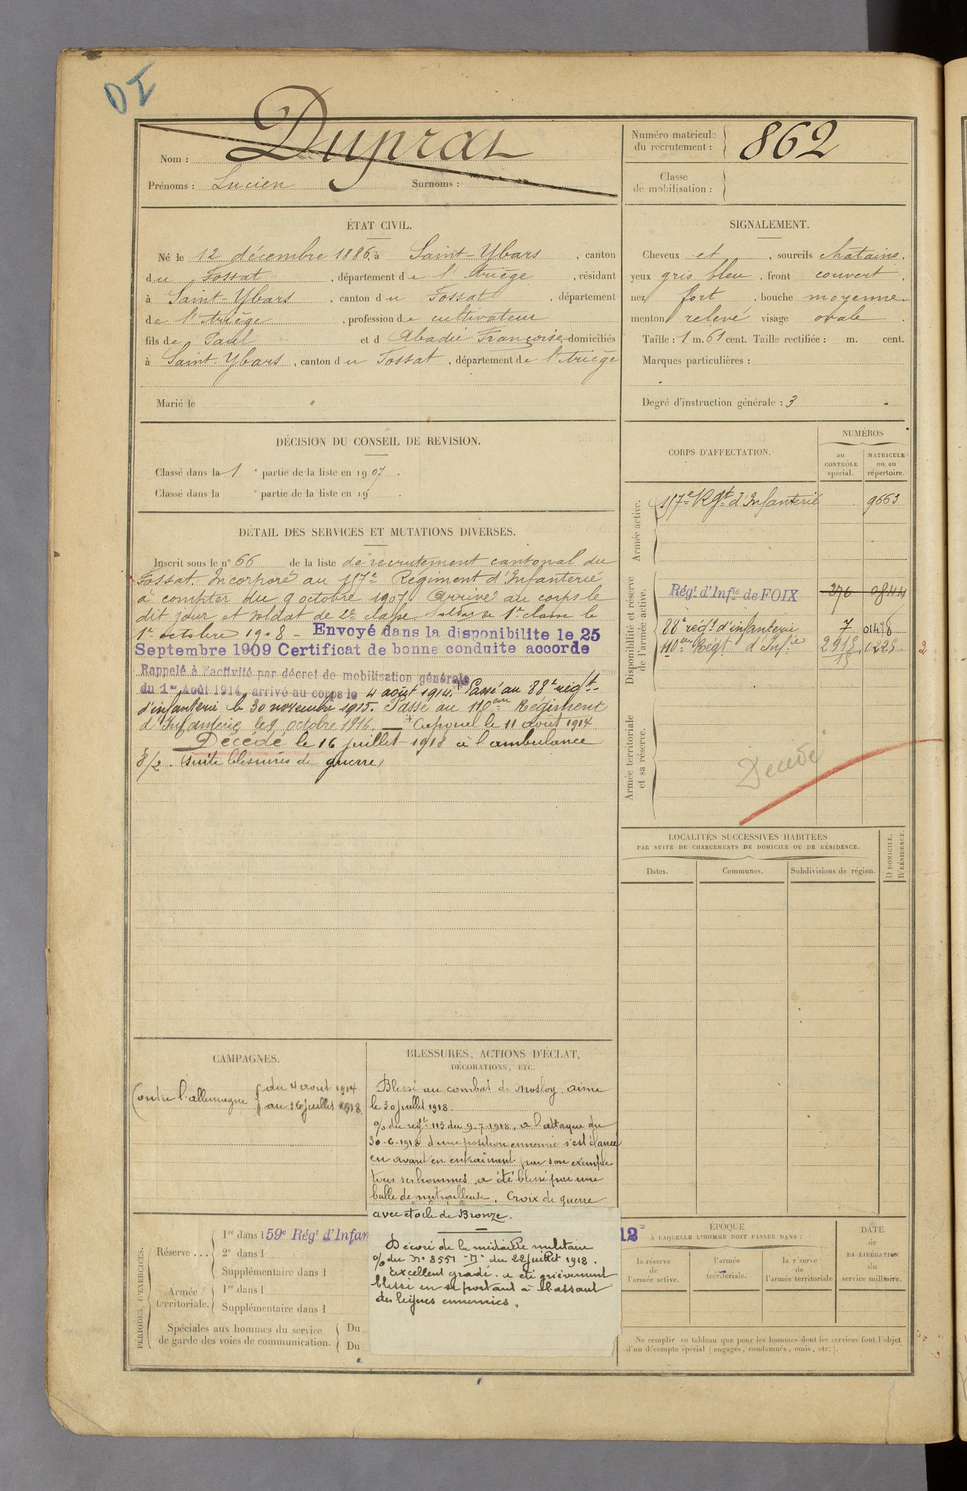 DI
Nom : Duprat
Prénoms : Lucien Surnoms :
Numéro matricule du recrutement : 862
Classe de mobilisation :
ÉTAT CIVIL.
Né le 12 décembre 1886, à Saint-Ybars, canton
du Fossat, département de l'Ariège, résidant
à Saint-Ybars, canton du Fossat, département
de l'Ariège, profession de cultivateur
fils de Paul et d Abadie Françoise, domiciliés
à Saint-Ybars, canton du Fossat, département de l'Ariège
Marié le
SIGNALEMENT.
Cheveux et, sourcils chatains.
yeux gris bleu, front couvert,
nez fort, bouche moyenne
menton relevé visage ovale.
Taille : 1 m. 61 cent. Taille rectifiée : m. cent.
Marques particulières :
Degré d'instruction générale : 3
DÉCISION DU CONSEIL DE REVISION.
Classé dans la 1 e partie de la liste en 1907.
Classé dans la e partie de la liste en 19 .
CORPS D'AFFECTATION.
NUMÉROS
au CONTRÔLE spécial.
MATRICULE ou au répertoire.
Armée active.
157e Rgt d'Infanterie 9663
Disponibilité et réserve de l'armée active.
Régt d'Infie de FOIX 376 0844
88e régt d'infanterie 7 01418
110eme Régt d'Infie 2918 0225
15
2
Armée territoriale et sa réserve.
Décédé
DÉTAIL DES SERVICES ET MUTATIONS DIVERSES.
Inscrit sous le n° 66 de la liste de recrutement cantonal du
Fossat. Incorporé au 157e Régiment d'Infanterie
à compter du 9 octobre 1907. Arrivé au corps le
dit jour et soldat de 2e classe. Soldat de 1re classe le
1er octobre 1908 - Envoyé dans la disponibilite le 25
Septembre 1909 Certificat de bonne conduite accorde
Rappelé à l'activité par décret de mobilisation générale
du 1er Août 1914, arrivé au corps le 4 août 1914. Passé au 88e régt
d'infanterie le 30 novembre 1915. Passé au 110eme Régiment
d'Infanterie le 9 octobre 1916. — Caporal le 11 août 1914
Décédé le 16 juillet 1918 à l'ambulance
5/2. (suite blessures de guerre)
LOCALITÉS SUCCESSIVES HABITÉES
PAR SUITE DE CHANGEMENTS DE DOMICILE OU DE RÉSIDENCE.
Dates. Communes. Subdivisions de région.
D DOMICILE.
R RÉSIDENCE.
CAMPAGNES.
Contre l'allemagne du 4 aout 1914
au 16 juillet 1918.
BLESSURES, ACTIONS D'ÉCLAT,
DÉCORATIONS, ETC.
Blessé au combat de Mosloy. aisne
le 30 juillet 1918.
o/o du régt 113 du 9.7.1918. a l'attaque du
30-6-1918 d'une position ennemie s'est élancé
en avant en entrainant par son exemple
tous ses hommes, a été blessé par une
balle de mitrailleuse. Croix de guerre
avec étoile de Bronze.
Décoré de la médaille militaire
o/o du n° 8551 "D" du 22 juillet 1918.
Excellent gradé. a été grièvement
blessé en se portant à l'assaut
des lignes ennemies.
PÉRIODES D'EXERCICES.
Réserve... 1re dans l 59e Régt d'Infan
2e dans l
Supplémentaire dans l
Armée territoriale. 1re dans l
Supplémentaire dans l
Spéciales aux hommes du service de garde des voies de communication. Du
Du
12
EPOQUE
A LAQUELLE L'HOMME DOIT PASSER DANS :
la réserve de l'armée active.
l'armée territoriale.
la réserve de l'armée territoriale
DATE de la LIBÉRATION du service militaire.
Ne remplir ce tableau que pour les hommes dont les services font l'objet
d'un décompte spécial (engagés, condamnés, omis, etc.).